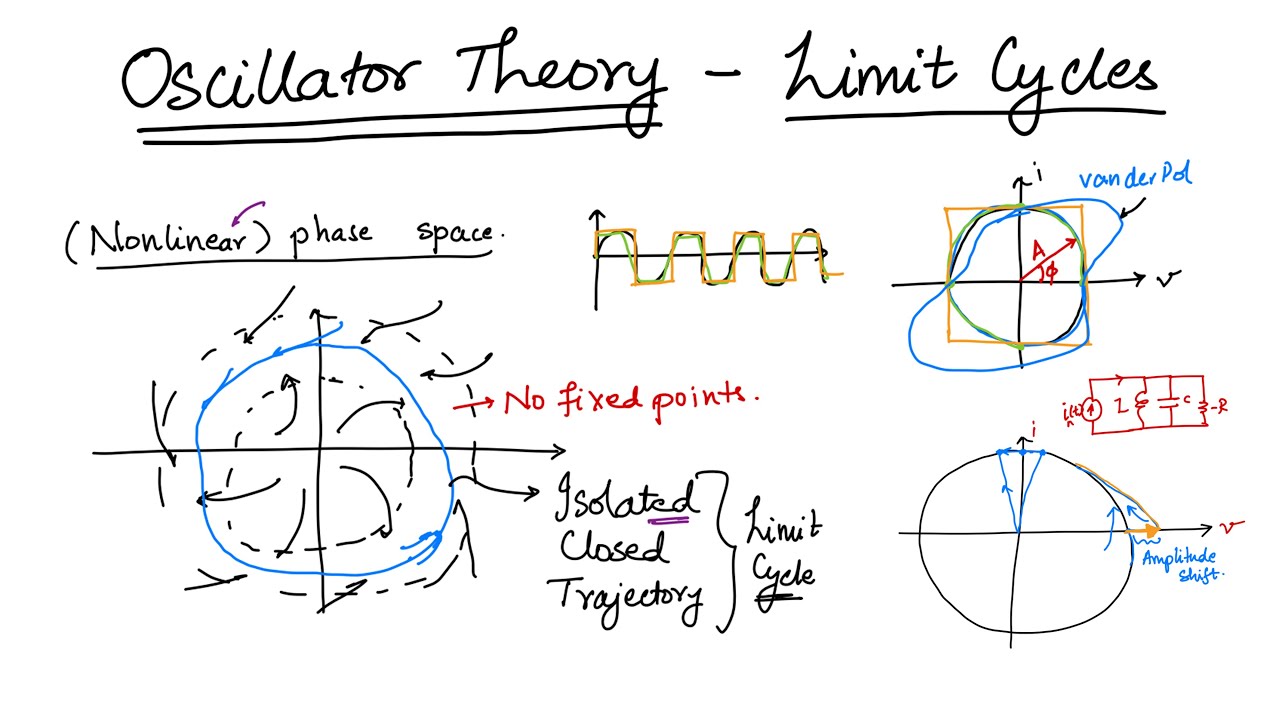 Oscillator Theory - Limit Cycles
(Nonlinear) phase space.
i
van der Pol
A
ϕ
v
→ No fixed points.
i(t)
n
L
C
-R
Isolated
Closed
Trajectory
Limit
Cycle
i
v
Amplitude
shift.